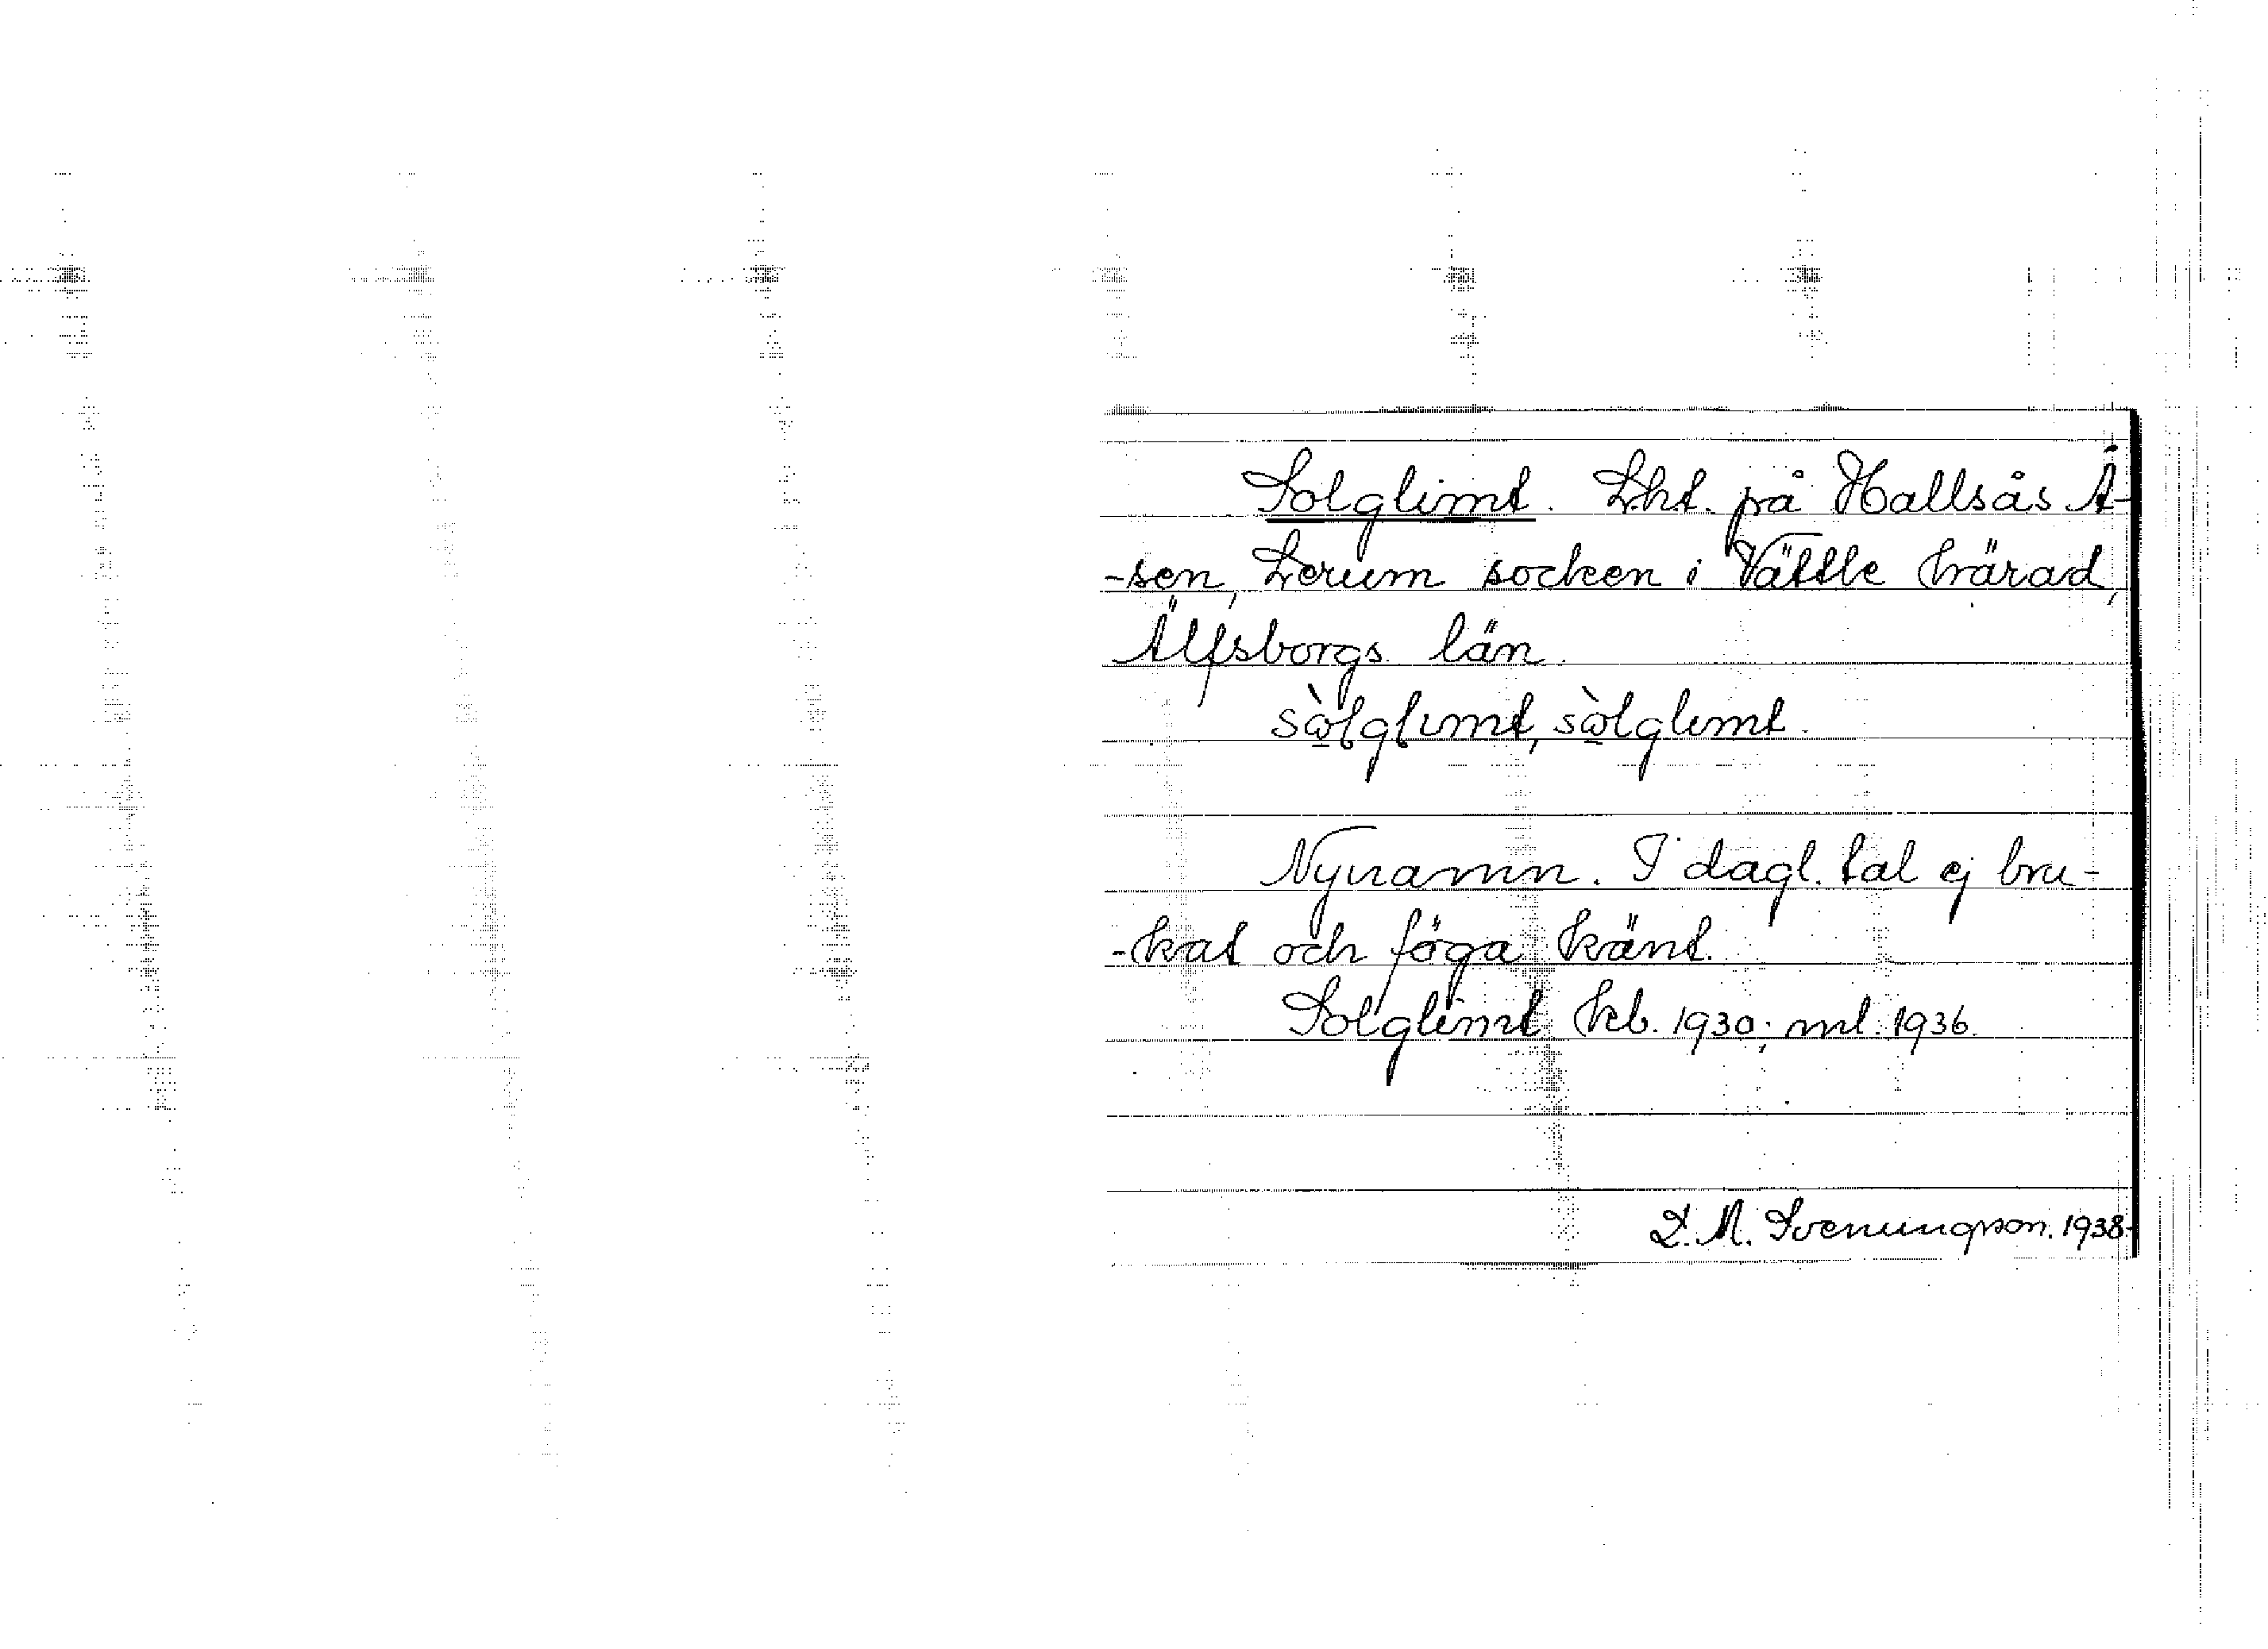 Solglimt. Lht. på Hallsås Å-
-sen, Lerum socken i Vättle härad,
Älfsborgs län.
sὼlglımt, sὼlglımt.
Nynamn. I dagl. tal ej bru-
-kat och föga känt.
Solglimt kb. 1930; ml. 1936.
L. M. Svenungson. 1938.